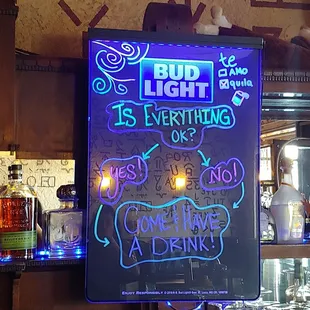 BUD
LIGHT
te
☐ AMO
☒ quila
IS EVERYTHING
OK?
YES!
NO!
COME HAVE
A DRINK!